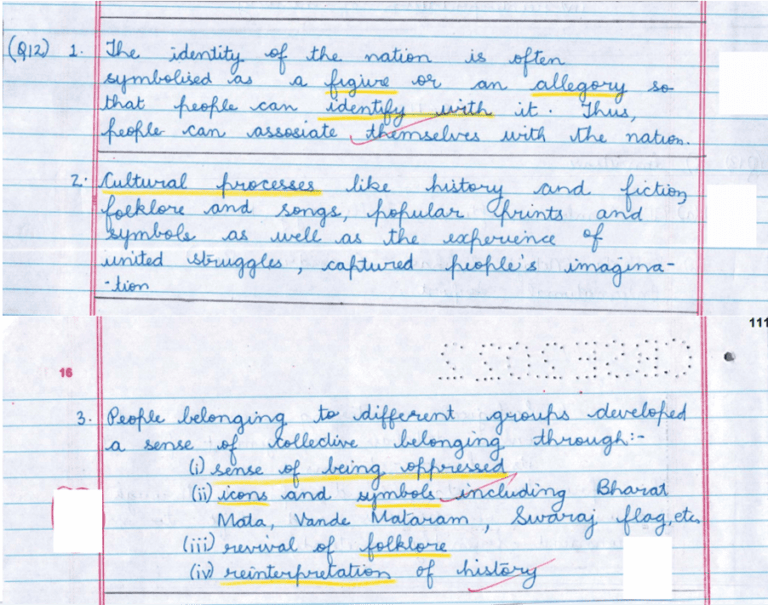 (Q12) 1. The identity of the nation is often
symbolised as a figure or an allegory so
that people can identify with it. Thus,
people can assosiate themselves with the nation.
2. Cultural processes like history and fiction,
folklore and songs, popular prints and
symbols as well as the experience of
united struggles, captured people's imagina-
-tion
111
CBSE 2022
16
3. People belonging to different groups developed
a sense of collective belonging through:-
(i) sense of being oppressed
(ii) icons and symbols including Bharat
Mata, Vande Mataram, Swaraj flag, etc.
(iii) revival of folklore
(iv) reinterpretation of history